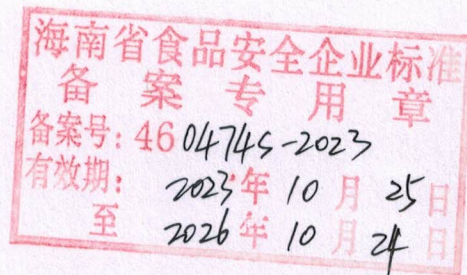 海南省食品安全企业标准
备案专用章
备案号：46 0474S-2023
有效期：2023年10月25日
至 2026年10月24日